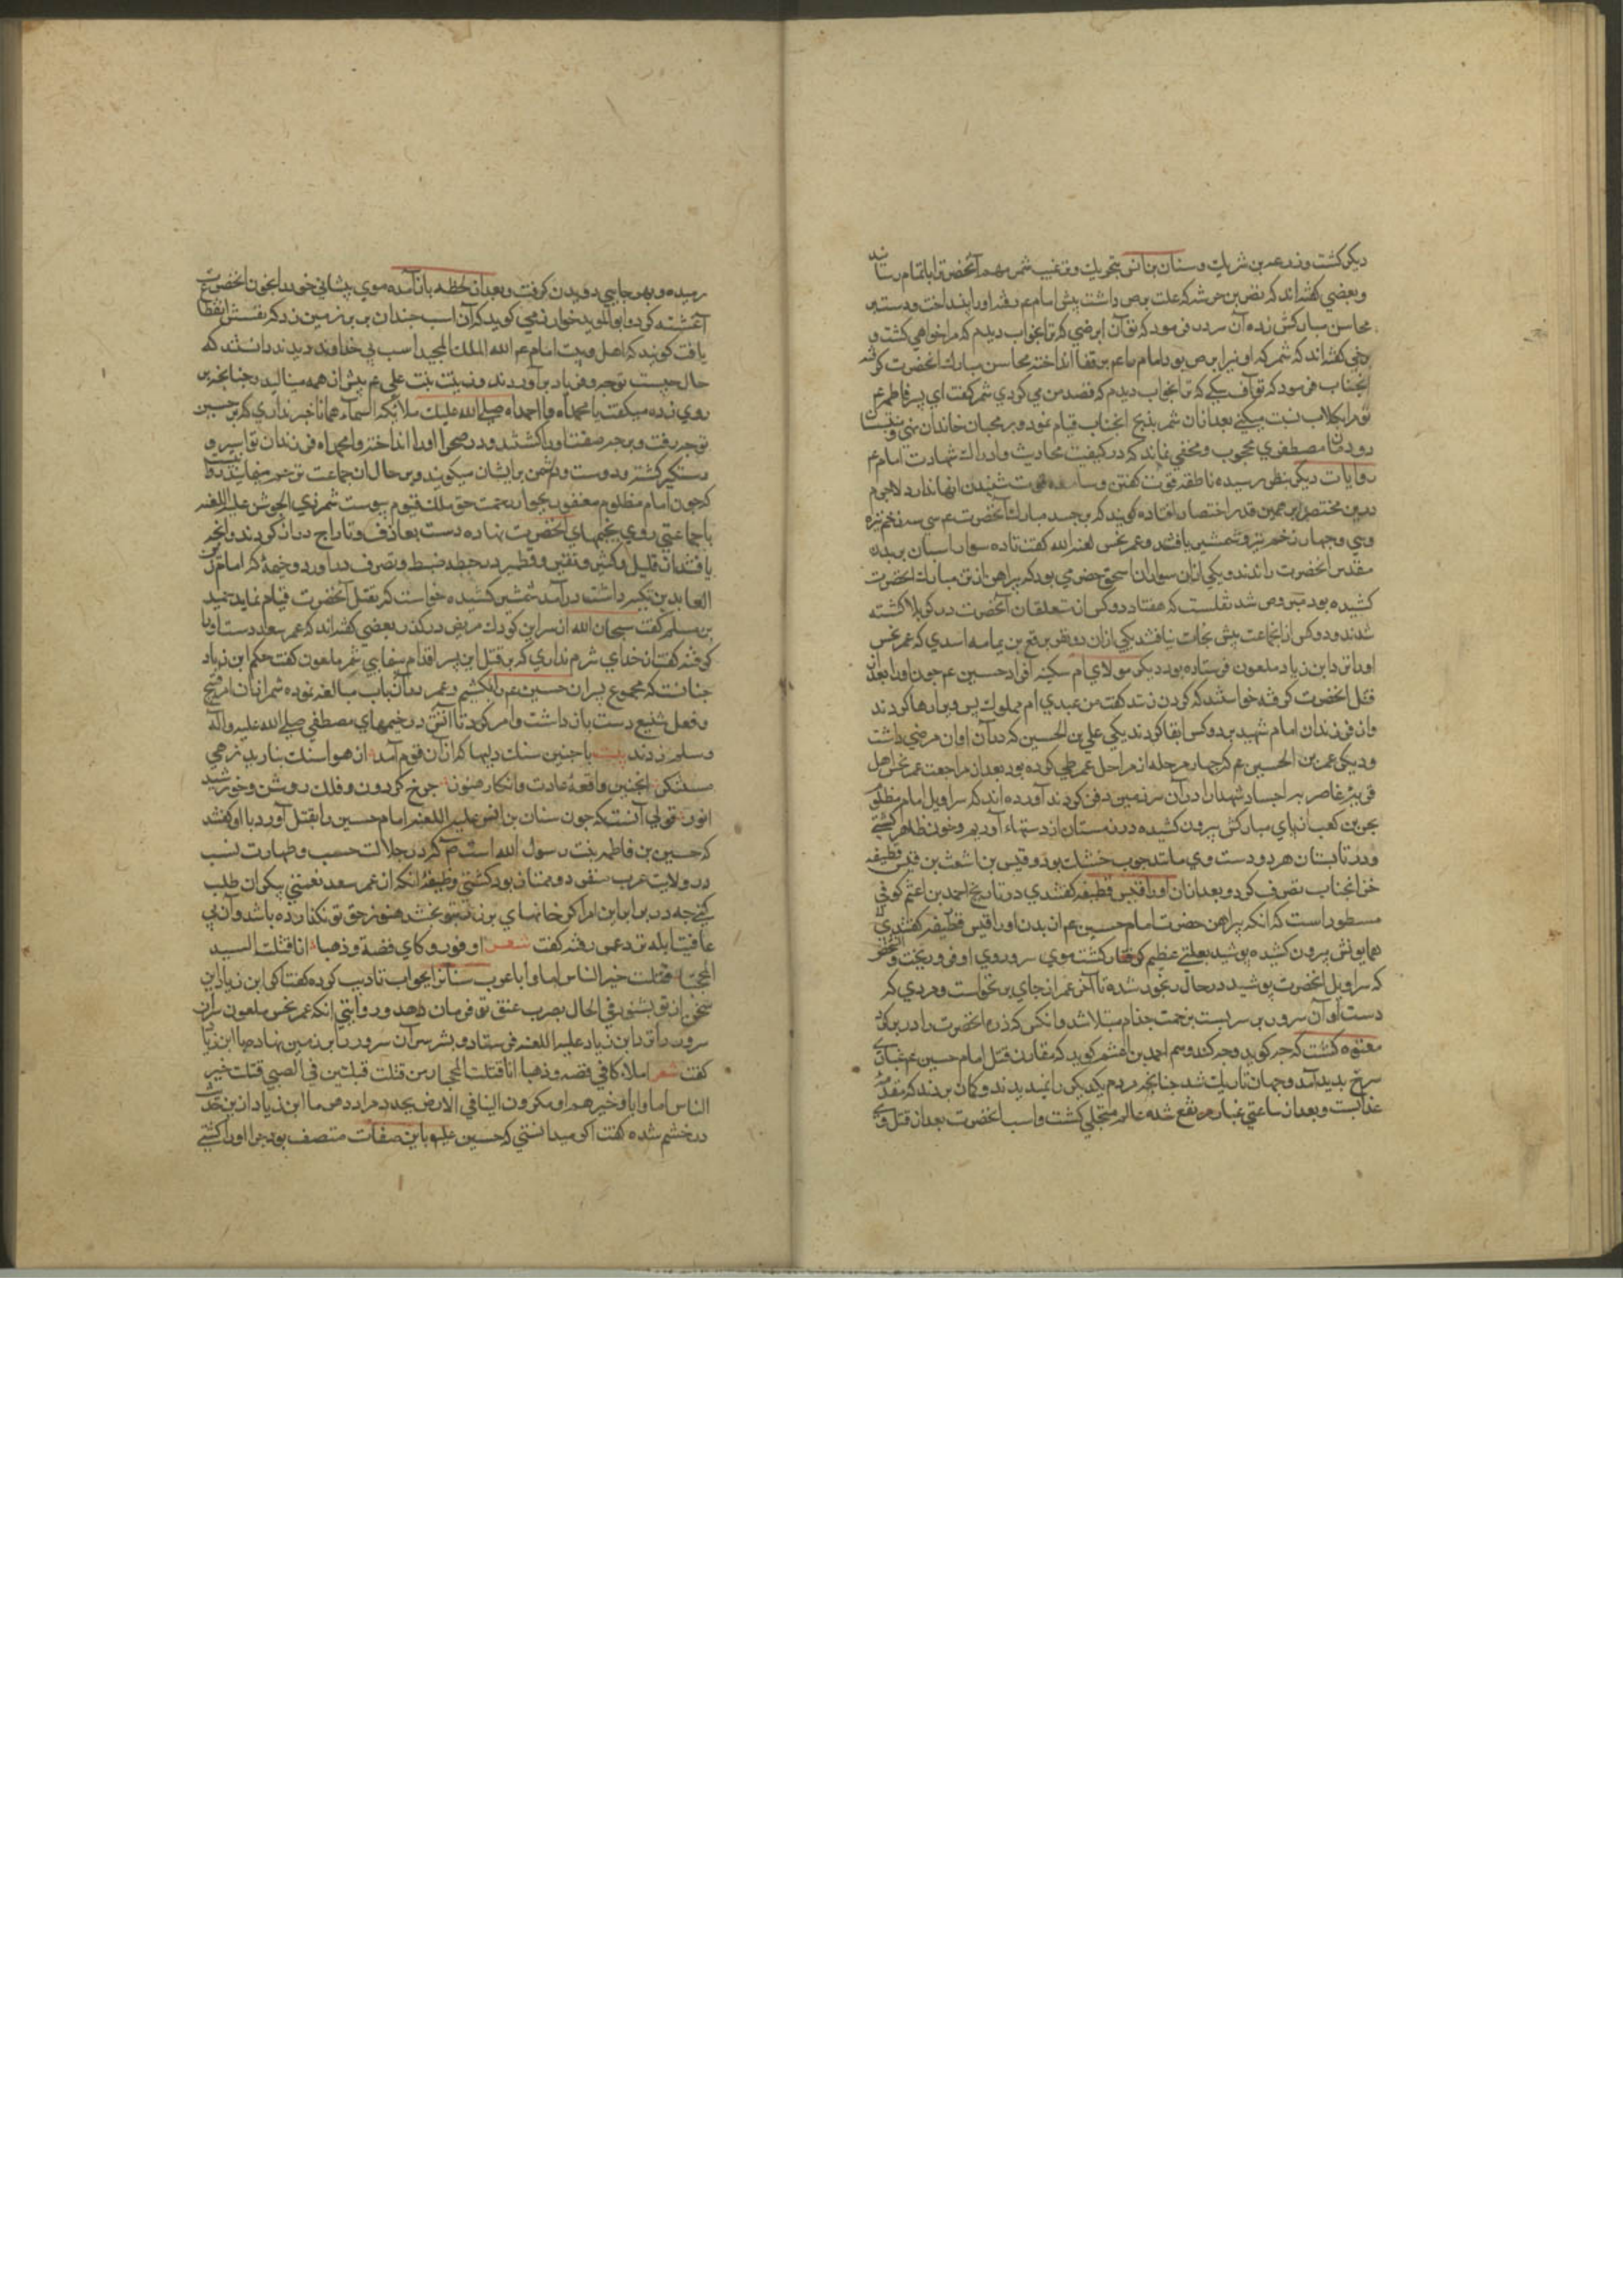 دیکر کشت وزرعه بن شریك وسنان بن انس بتحریك وترغیب شمر مهم آنحضرترا باتمام رسانید
وبعضی کفته‌اند که نضر بن خرشه که علت برص داشت پیش امام عم رفته اورا بینداخت ودست بر
محاسن مبارکش زده آن سرور فرمود که تو آن ابرصی که ترا بخواب دیدم که مرا خواهی کشت و
برخی کفته‌اند که شمر که او نیز ابرص بود امام را عم بر قفا انداخته محاسن مبارك انحضرت کرفته
انجناب فرمود که تو آن سکی که ترا بخواب دیدم که قصد من می کردی شمر کفت ای پسر فاطمه عم
تو مرا بکلاب نسبت میکنی بعد ازان شمر بذبح انجناب قیام نمود وبر محبان خاندان نبی و
دودمان مصطفوی محجوب ومخفی نماند که در کیفیت محاربت وادراك شهادت امام عم
روایات دیکر بنظر رسیده ناطقه قوت کفتن وسامعه قوت شنیدن انها ندارد لاجرم
درین مختصر برهمین قدر اختصار افتاده کویند که بر جسد مبارك آنحضرت عم سی سه زخم نیزه
وسی وچهار زخم تیر وشمشیر یافتند وعمر نحس لعنه الله کفت تا ده سوار اسبان بر بدن
مقدس انحضرت راندند ویکی ازان سواران اسحق حضرمی بود که پیراهن از تن مبارك انحضرت
کشیده بود مبروص شد نقلست که هفتاد دو کس از متعلقان آنحضرت در کربلا کشته
شدند ودو کس از انجماعت بیش نجات نیافتند یکی ازان دو نفر مرقع بن یمامه اسدی که عمر نحس
اورا نزد ابن زیاد ملعون فرستاده بود دیکر مولای ام سکینه افراد حسین عم چون اورا بعد از
قتل انحضرت کرفته خواستند که کردن زنند کفت من عبدی ام مملوك پس ویرا رها کردند
واز فرزندان امام شهید بر دو کس ابقا کردند یکی علی بن الحسین که در آن اوان مرضی داشت
ودیکر عمر بن الحسین عم که چهار مرحله از مراحل عمر طی کرده بود بعد از مراجعت عمر نحس اهل
قریه غاضریه اجساد شهدا را در آن سرزمین دفن کردند آورده اند که سراویل امام مظلوم
بحر بن کعب از پای مبارکش بیرون کشیده در زمستان از دستهاء او ریم وخون ظاهر کشتی
ودر تابستان هر دو دست وی مانند چوب خشك بود وقیس بن اشعث بن قیس قطیفه
خز انجناب تصرف کرد وبعد ازان اورا قیس قطیفه کفتندی در تاریخ احمد بن اعثم کوفی
مسطور است که انکه پیراهن حضرت امام حسین عم از بدن اورا قیس قطیفه کفتندی
همایونش بیرون کشیده بپوشید بعلتی عظیم کرفتار کشت موی سر وروی او فرو ریخت وشخصی
که سراویل انحضرت پوشید در حال رنجور شده تا آخر عمر از جای برنخواست ومردی که
دستار آن سرور بر سر بست بزحمت جذام مبتلا شد وانکس که زره انحضرت را در بر کرد
معتوه کشت که چه کوید وچه کند وهم احمد بن اعثم کوید که مقارن قتل امام حسین عم غباری
سرخ بدید آمد وجهان تاریك شد چنانچه مردم یکدیکر را نمیدیدند وکمان بردند که مقدمه
عذابست وبعد از ساعتی غبار مرتفع شده عالم متجلی کشت واسب انحضرت بعد از قتل وی
رمیده وبهر جایی دویدن کرفت وبعد از لحظه باز آمده موی پیشانی خود را بخون انحضرت عم
آغشته کرد وابو الموید خوارزمی کوید که آن اسب چندان سر بر زمین زد که نفسش انقطاع
یافت کویند که اهل وبیت امام عم الله الملك المجید اسب بی خداوند دیدند دانستند که
حال چیست نوحه وفریاد برآوردند وزینب بنت علی عم بیش از همه مینالید چنانچه بر
روی زده میکفت یا محمداه وا احمداه صلی الله علیك ملایکة السماء همانا خبر نداری که بر حسین
تو چه رفت وبر چه صفت اورا کشتند ودر صحرا اورا انداختند وا محمداه فرزندان تو اسیر و
دستکیر کشته ودوست ودشمن بر ایشان میکویند وبر حال ان جماعت ترحم مینمایند
که چون امام مظلوم مغفور بجوار رحمت حق ملك قیوم پیوست شمر ذی الجوشن علیه اللعنه
با جماعتی روی بخیمهای انحضرت نهاده دست بغارت وتاراج دراز کردند وانچه
یافتند از قلیل وکثیر ونقیر وقطمیر در حیطه ضبط وتصرف در آورد وخیمهٔ که امام زین
العابدین تکیه داشت درآمد شمشیر کشیده خواست که بقتل آنحضرت قیام نماید حمید
بن مسلم کفت سبحان الله از سر این کودك مریض درکذر بعضی کفته‌اند که عمر سعد دست اورا
کرفته کفت از خدای شرم نداری که بر قتل این پسر اقدام مینمایی شمر ملعون کفت حکم ابن زیاد
چنانست که مجموع پسران حسین عم را بکشیم وعمر در آنباب مبالغه نموده شمر از آن امر قبیح
وفعل شنیع دست باز داشت وامر کرد تا آتش در خیمهای مصطفی صلی الله علیه واله
وسلم زدند بیت با چنین سنك دلیها که ازان قوم آمد از هوا سنك نبارید زهی
مستنکر انچنین واقعهٔ حادث وانکار هنوز چرخ کردون وفلك روشن وخورشید
انور قولی آنست که چون سنان بن انس علیه اللعنه امام حسین را بقتل آورد با او کفتند
که حسین بن فاطمه بنت رسول الله است صم که در جلالت حسب وطهارت نسب
در ولایت عرب متفرد وممتاز بود کشتی وظیفه آنکه از عمر سعد نعمتی بیکران طلب
کنی چه در برابر این امر اکر خانهای پر زر بتو بخشد هنوز حق تو نکذارده باشد وآن بی
عاقبت ابله نزد عمر رفته کفت شعر اوفر رکابی فضة وذهبا انا قتلت السید
المحجبا قتلت خیر الناس اما وابا عمر سنانرا بجواب تادیب کرده کفت اکر ابن زیاد این
سخن از تو بشنود فی الحال بضرب عنق تو فرمان دهد وروایتی انکه عمر نحس ملعون سر آن
سرور را نزد ابن زیاد علیه اللعنه فرستاد وبشر سر آن سرور را بر زمین نهاد وبا ابن زیاد
کفت شعر املاء رکابی فضه وذهبا انا قتلت المحجبا ومن قتلت قبلتین فی الصبی قتلت خیر
الناس اما وابا وخیرهم
در خشم شده کفت اکر میدانستی که حسین علیه باین صفات متصف بود چرا اورا کشتی